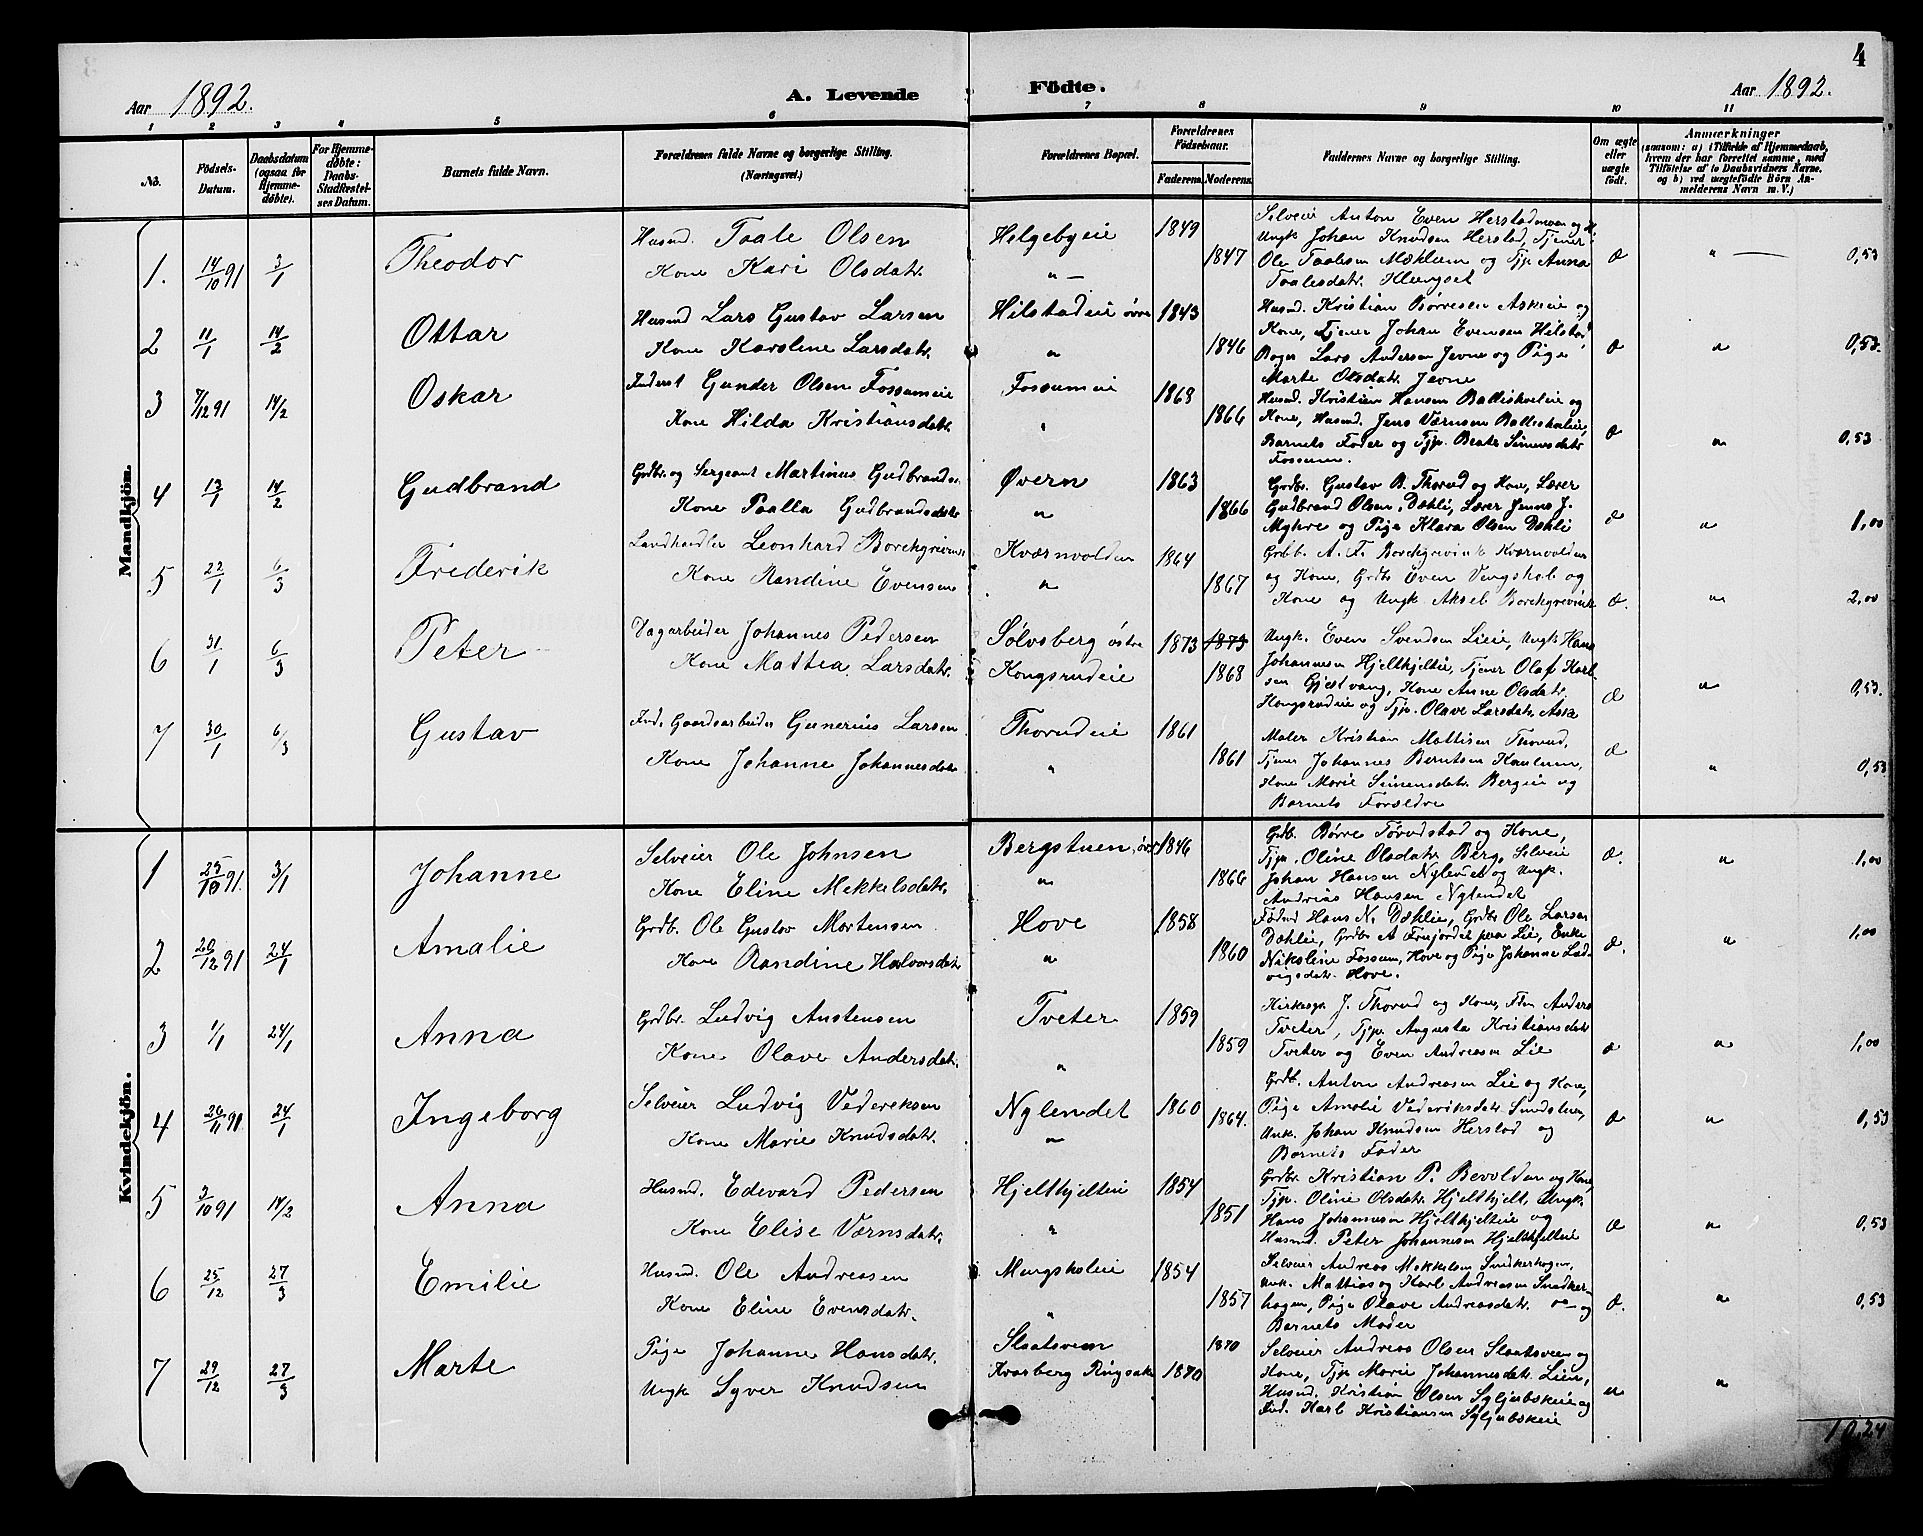 4
Aar 1892.
A. Levende Födte.
Aar 1892.
1 2 3 4 5 6 7 8 9 10 11
No.
Födsels-Datum.
Daabsdatum (ogsaa for Hjemmedøbte).
For Hjemmedøbte: Daabs-Stadfæstelses Datum.
Barnets fulde Navn.
Forældrenes fulde Navne og borgerlige Stilling.
(Næringsvei.)
Forældrenes Bopæl.
Forældrenes Födselsaar.
Faderens. Moderens.
Faddernes Navne og borgerlige Stilling.
Om ægte eller uægte født.
Anmærkninger
(saasom: a) i Tilfælde af Hjemmedaab, hvem der har forrettet samme, med Tilföielse af to Daabsvidners Navne, og b) ved uægtefödte Börn Anmelderens Navn m. V.)
Mandkjön.
1. 14/10 91 3/1 Theodor
Husmd. Taale Olsen
Kone Kari Olsdatr.
Helgebyeie
" —
1849
1847
Selveier Anton Even Herstadmoen og
Ungk Johan Knudsen Herstad, Tjener
Ole Taalesen Mæhlum og Tjp Anna
Taalesdatr. Klungset
æ " 0,53
2 11/1 14/2 Ottar
Husmd Lars Gustav Larsen
Kone Karoline Larsdatr.
Hilstadeie øvre
"
1843
1846
Husmd. Kristian Børresen Askeie og
Kone, Tjener Johan Evensen Hilstad,
Bager Lars Andersen Jevne og Pige
Marte Olsdatr. Jevne
æ " 0,53.
3 7/12 91 14/2 Oskar
Inderst Gunder Olsen Fossumeie
Kone Hilda Kristiansdatr.
Fossumeie
"
1868
1866
Husmd. Kristian Hansen Balliskaleie og
Kone, Husmd. Jens Værnsen Balliskaleie,
Barnets Fader og Tjp. Beate Simensdatr
Fossum.
æ " 0,53
4 13/1 14/2 Gudbrand
Grdbr. og Sergeant Martinus Gudbrands.
Kone Paalla Gudbrandsdatr
Øvern
"
1863
1866
Grdbr. Gustav B. Thorud og Kone, Lærer
Gudbrand Olsen, Dæhli, Lærer Jenns J.
Myhre og Pige Klara Olsen Dæhli
æ " 1,00
5 22/1 6/3 Frederik
Landhandler Leonhard Borchgrevink
Kone Randine Evensen
Kværnvolden
"
1864
1867
Grdb. A. F. Borchgrevink Kværnvolden
og Kone, Grdb Even Vengskal og
Kone og Ungk Aksel Borchgrevink
æ. " 2,00
6 31/1 6/3 Peter
Dagarbeider Johannes Pedersen
Kone Mattea Larsdatr.
Sølvsberg østre
Kongsrudeie
1873 1873
1868
Ungk. Even Svendsen Lieie, Ungk Hans
Johannesen Hjelthjelteie, Tjener Olaf Karl-
sen Gjestvang, Kone Anne Olsdatr.
Kongsrudeie og Tjp. Olave Larsdatr. Ask
æ " 0,53.
7 30/1 6/3 Gustav
Ind. Gaardsarbeider Gunerius Larsen
Kone Johanne Johannesdatr
Thorudeie
"
1861
1861
Maler Kristian Mattisen Thorud,
Tjener Johannes Berntsen Kaulum,
Kone Marie Simensdatr. Bergeie og
Barnets Forældre
æ " 0,53
Kvindekjön.
1 25/10 91. 3/1 Johanne
Selveier Ole Johnsen
Kone Eline Mekkelsdatr.
Bergstuen, øvre
"
1846
1866
Grdb. Børre Tøvudstad og Kone,
Tjp. Oline Olsdatr. Berg, Selveie
Johan Hansen Nylendet og Ungk.
Andrias Hansen Nylendet
æ. " 1,00
2 20/12 91 24/1 Amalie
Grdb. Ole Gustav Mortensen
Kone Randine Halvorsdatr
Hove
"
1858
1860
Fødrd Hans N. Dæhlie, Grdbr Ole Larsen
Dæhlie, Grdbr A Frujordet paa Lie, Enke
Nikoline Fossum, Hove og Pige Johanne Lud-
vigsdatr. Hove.
æ. " 1,00
3 1/1 24/1 Anna
Grdbr. Ludvig Austensen
Kone Olave Andersdatr.
Tveter
"
1859
1859
Kirkesgr. J. Thorud og Kone, Fdm Anders
Tveter, Tjp. Augusta Kristiansdatr
Tveter og Even Andreasen Lie
æ " 1,00
4 26/11 91. 24/1 Ingeborg
Selveier Ludvig Vedereksen
Kone Marie Knudsdatr.
Nylendet
"
1860
1864.
Grdb. Anton Andreasen Lie og Kone,
Pige Amalie Vederiksdatr. Sundstuen,
Unk. Johan Knudsen Herstad og
Barnets Fader
æ " 0,53
5 3/10 91 14/2 Anna
Husmd. Edevard Pedersen
Kone Elise Værnsdatr.
Hjelthjelteie
"
1854
1851
Grdbr. Kristian P. Bevoldan og Kone,
Tjp. Oline Olsdatr. Hjelthjelt, Ungk.
Hans Johannesen Hjelthjelteie og
Husmd. Peter Johannesen Hjelthjelteie
æ " 0,53
6 25/12 27/3 Emilie
Husmd. Ole Andreasen
Kone Eline Evensdatr.
Mungskoleie
"
1854
1857
Selveier Andreas Mekkelsen Snedkerhagen,
Unk. Mattias og Karl Andreasen Snedker-
hagen, Pige Olave Andreasdatr. — og
Barnets Moder
æ. " 0,53
7 29/12 27/3 Marte
Pige Johanne Hansdatr.
Ungk Syver Knudsen
Slaatsveen
Kvarberg Ringsaker
1870
1870
Selveier Andreas Olsen Slaatsveen og
Kone, Tjp Marie Johannesdatr. Lien,
Husmd. Kristian Olsen Syljubskeie og
Ind. Karl Kristiansen Syljubskeie
u "
10,24